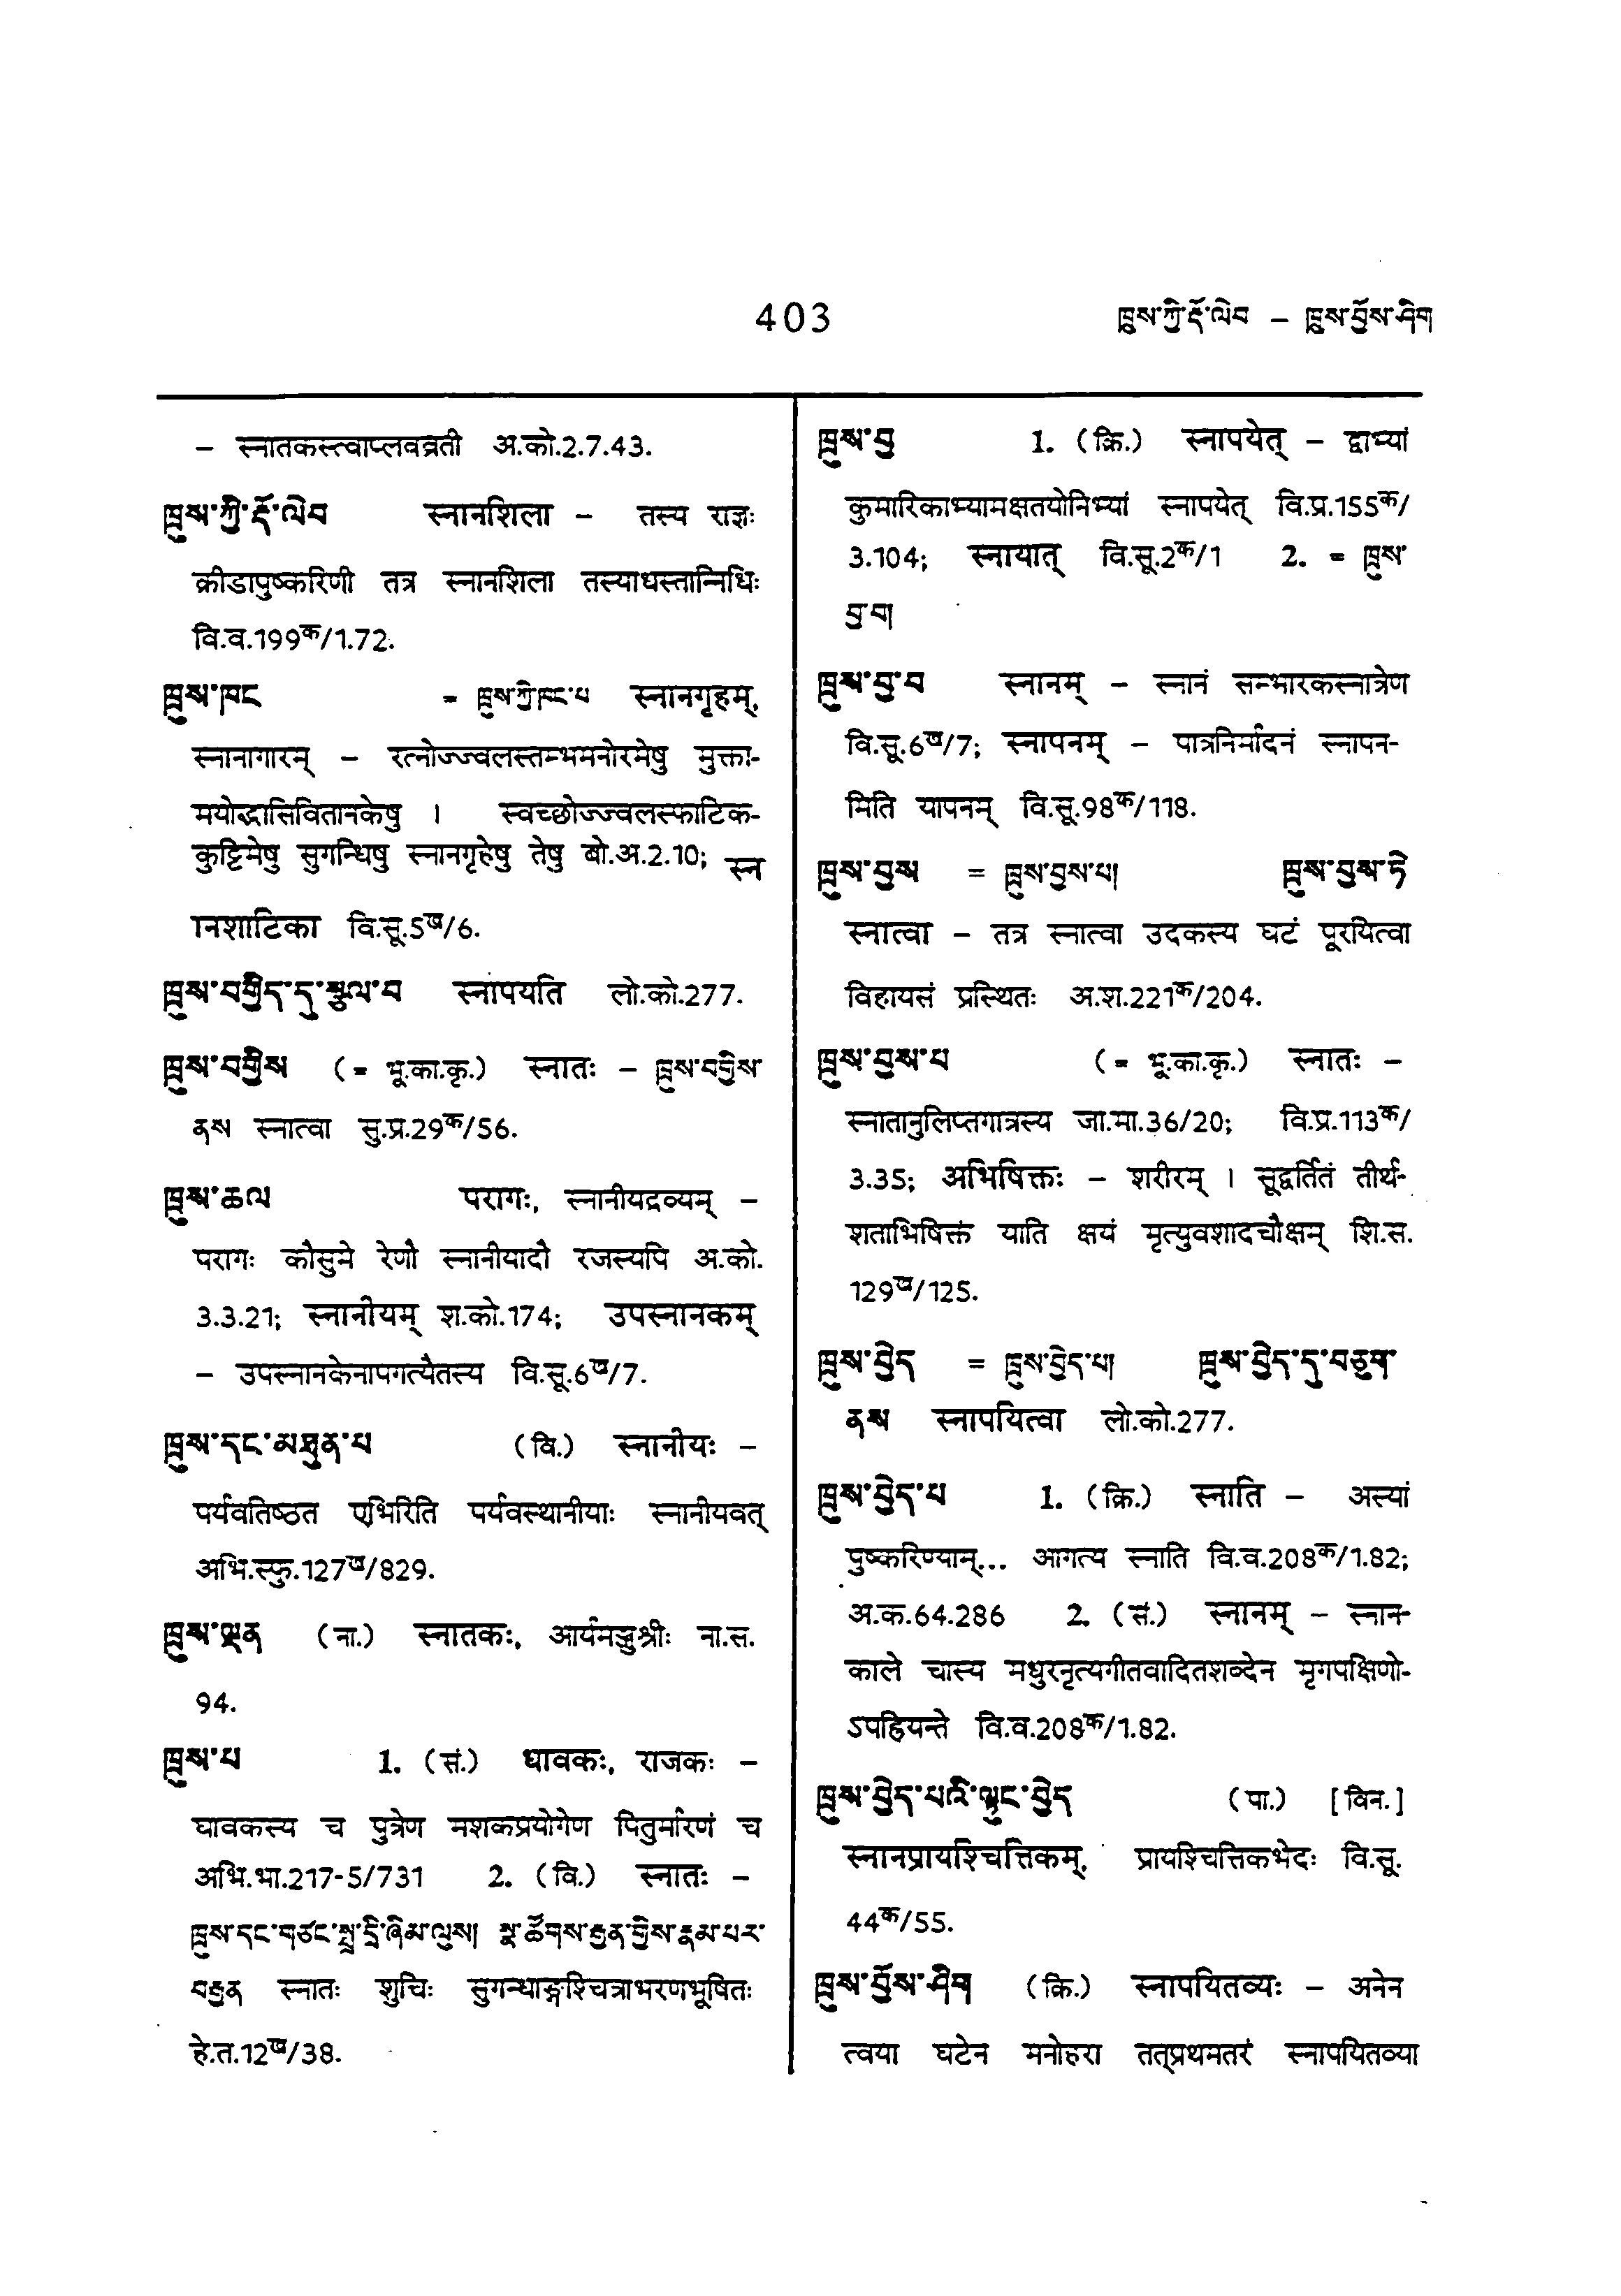 403
ཁྲུས་ཀྱི་རྡོ་ལེབ – ཁྲུས་བྱོས་ཤིག
– स्नातकस्त्वाप्लवव्रती अ.को.2.7.43.
ཁྲུས་ཀྱི་རྡོ་ལེབ स्नानशिला – तस्य राज्ञः
क्रीडापुष्करिणी तत्र स्नानशिला तस्याधस्तान्निधिः
वि.व.199क/1.72.
ཁྲུས་ཁང = ཁྲུས་ཀྱི་ཁང་པ स्नानगृहम्,
स्नानागारम् – रत्नोज्ज्वलस्तम्भमनोरमेषु मुक्ता-
मयोद्भासिवितानकेषु । स्वच्छोज्ज्वलस्फाटिक-
कुट्टिमेषु सुगन्धिषु स्नानगृहेषु तेषु बो.अ.2.10; स्न
ानशाटिका वि.सू.5ख/6.
ཁྲུས་བགྱིད་དུ་སྩལ་བ स्नापयति लो.को.277.
ཁྲུས་བགྱིས (= भू.का.कृ.) स्नातः – ཁྲུས་བགྱིས་
ནས स्नात्वा सु.प्र.29क/56.
ཁྲུས་ཆལ परागः, स्नानीयद्रव्यम् –
परागः कौसुमे रेणौ स्नानीयादौ रजस्यपि अ.को.
3.3.21; स्नानीयम् श.को.174; उपस्नानकम्
– उपस्नानकेनापगत्यैतस्य वि.सू.6ख/7.
ཁྲུས་དང་མཐུན་པ (वि.) स्नानीयः –
पर्यवतिष्ठत एभिरिति पर्यवस्थानीयाः स्नानीयवत्
अभि.स्फु.127ख/829.
ཁྲུས་ལྡན (ना.) स्नातकः, आर्यमञ्जुश्रीः ना.स.
94.
ཁྲུས་པ 1. (सं.) धावकः, राजकः –
धावकस्य च पुत्रेण मशकप्रयोगेण पितुर्मारणं च
अभि.भा.217-5/731 2. (वि.) स्नातः –
ཁྲུས་དང་གཙང་སྦྲ་དྲི་ཞིམ་ལུས། སྣ་ཚོགས་རྒྱན་གྱིས་རྣམ་པར་
བརྒྱན स्नातः शुचिः सुगन्धाङ्गश्चित्राभरणभूषितः
हे.त.12ख/38.
ཁྲུས་བྱ 1. (क्रि.) स्नापयेत् – द्वाभ्यां
कुमारिकाभ्यामक्षतयोनिभ्यां स्नापयेत् वि.प्र.155क/
3.104; स्नायात् वि.सू.2क/1 2. = ཁྲུས་
བྱ་བ།
ཁྲུས་བྱ་བ स्नानम् – स्नानं सम्भारकस्नात्रेण
वि.सू.6ख/7; स्नापनम् – पात्रनिर्मादनं स्नापन-
मिति यापनम् वि.सू.98क/118.
ཁྲུས་བྱས = ཁྲུས་བྱས་པ། ཁྲུས་བྱས་ཏེ
स्नात्वा – तत्र स्नात्वा उदकस्य घटं पूरयित्वा
विहायसं प्रस्थितः अ.श.221क/204.
ཁྲུས་བྱས་པ (= भू.का.कृ.) स्नातः –
स्नातानुलिप्तगात्रस्य जा.मा.36/20; वि.प्र.113क/
3.35; अभिषिक्तः – शरीरम् । सूद्वर्तितं तीर्थ-
शताभिषिक्तं याति क्षयं मृत्युवशादचौक्षम् शि.स.
129ख/125.
ཁྲུས་བྱེད = ཁྲུས་བྱེད་པ། ཁྲུས་བྱེད་དུ་བཅུག་
ནས स्नापयित्वा लो.को.277.
ཁྲུས་བྱེད་པ 1. (क्रि.) स्नाति – अस्यां
पुष्करिण्याम्... आगत्य स्नाति वि.व.208क/1.82;
अ.क.64.286 2. (सं.) स्नानम् – स्नान-
काले चास्य मधुरनृत्यगीतवादितशब्देन मृगपक्षिणो-
ऽपह्रियन्ते वि.व.208क/1.82.
ཁྲུས་བྱེད་པའི་ལྟུང་བྱེད (पा.) [विन.]
स्नानप्रायश्चित्तिकम्, प्रायश्चित्तिकभेदः वि.सू.
44क/55.
ཁྲུས་བྱོས་ཤིག (क्रि.) स्नापयितव्यः – अनेन
त्वया घटेन मनोहरा तत्प्रथमतरं स्नापयितव्या